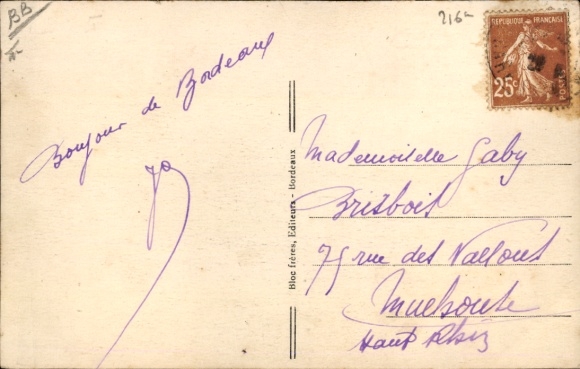 BB
216
RÉPUBLIQUE FRANÇAISE
25c
POSTES
Bonjour de Bordeaux
Jo
Bloc frères, Editeurs - Bordeaux
Mademoiselle Gaby
Brisbois
75 rue des Vallons
Mulhouse
Haut Rhin